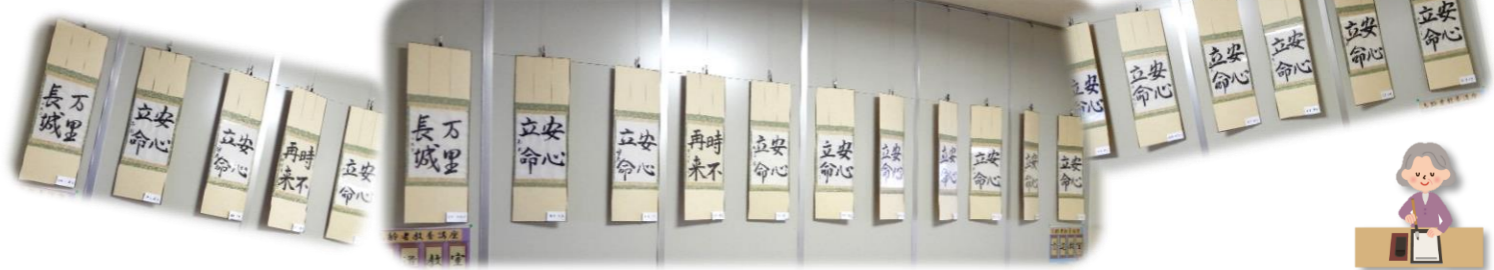 万里
長城
安心
立命
安心
立命
時不
再来
安心
立命
万里
長城
安心
立命
安心
立命
時不
再来
安心
立命
安心
立命
安心
立命
安心
立命
安心
立命
安心
立命
安心
立命
齢者教養講座
安心
立命
安心
立命
安心
立命
安心
立命
安心
立命
安心
立命